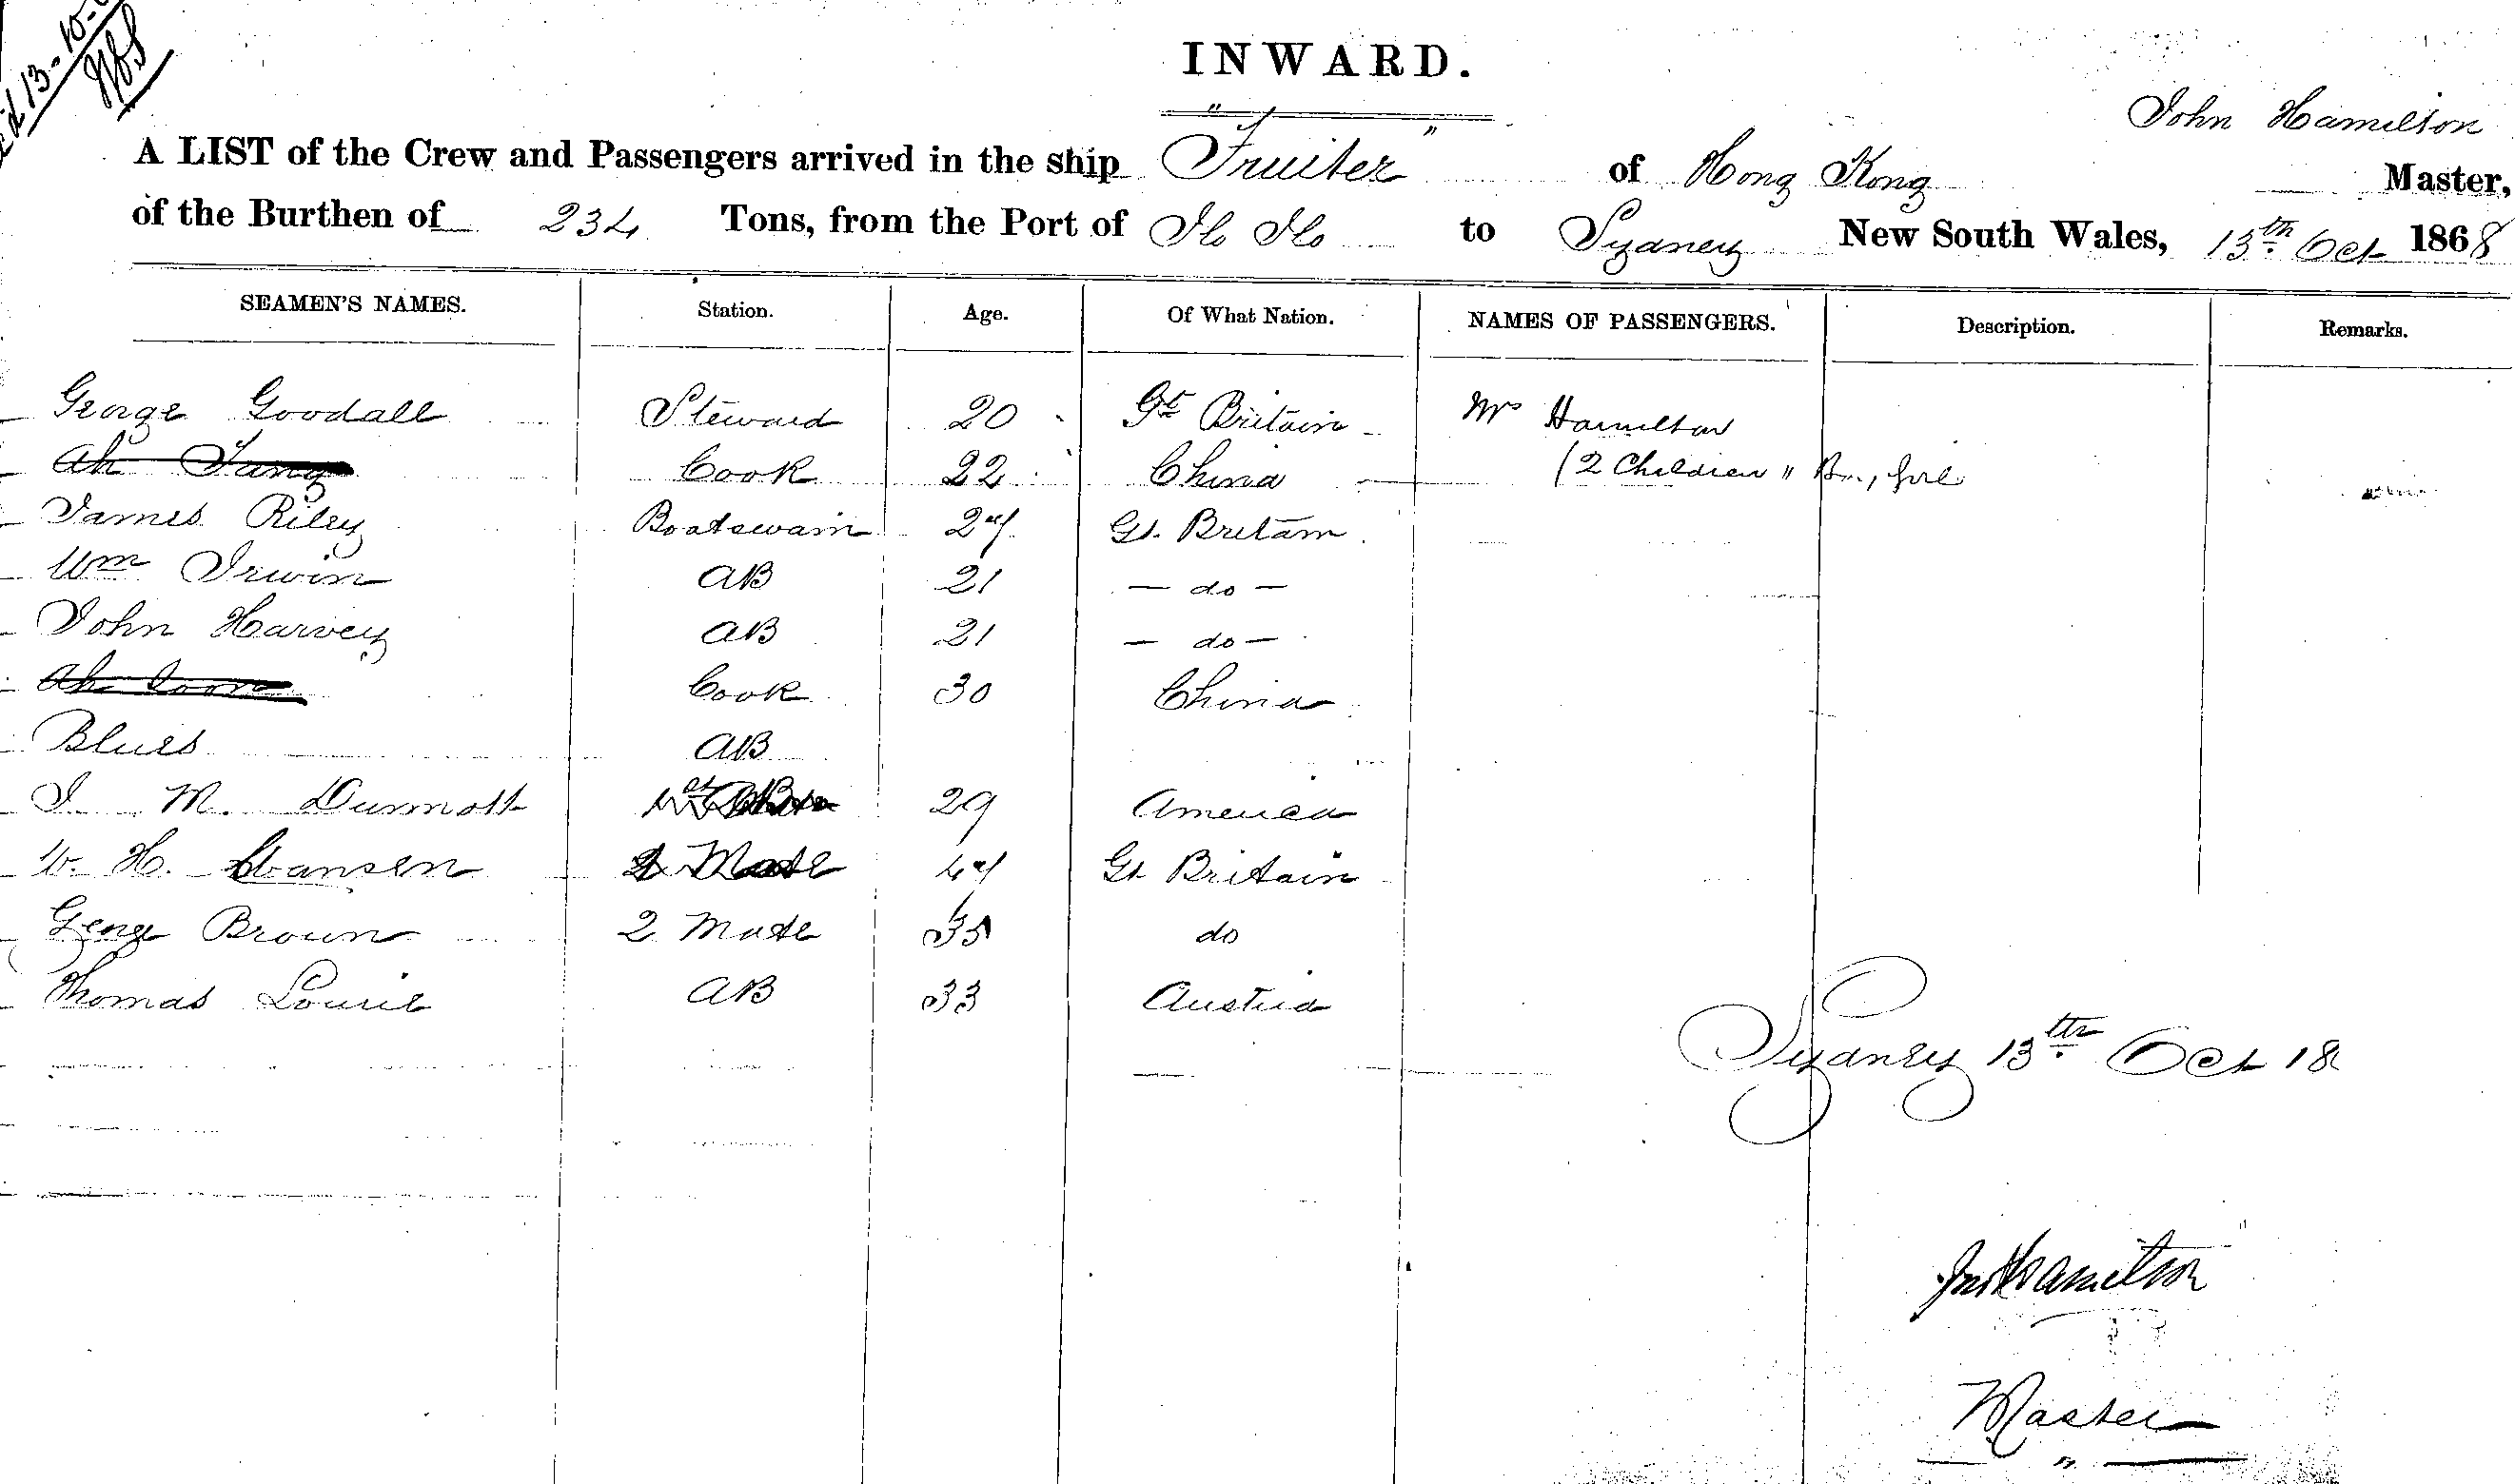 13-10-
INWARD.
John Hamilton
A LIST of the Crew and Passengers arrived in the ship "Fruiter" of Hong Kong Master,
of the Burthen of 234 Tons, from the Port of Ilo Ilo to Sydney New South Wales, 13th Oct 1868
SEAMEN'S NAMES. Station. Age. Of What Nation. NAMES OF PASSENGERS. Description. Remarks.
George Goodall Steward 20 Gt Britain Mrs Hamilton
Ah Cook 22 China (2 Children " Boy, Girl
James Riley Boatswain 27 Gt. Britain
Wm Irwin AB 21 - do -
John Harvey AB 21 - do -
Ah Cook 30 China
Blues AB
J M. Durmott 29 America
W. H. 2 Mate 47 Gt Britain
George Brown 2 Mate 35 do
Thomas Lourie AB 33 Austria
Sydney 13th Oct 18
Jno Hamilton
Master